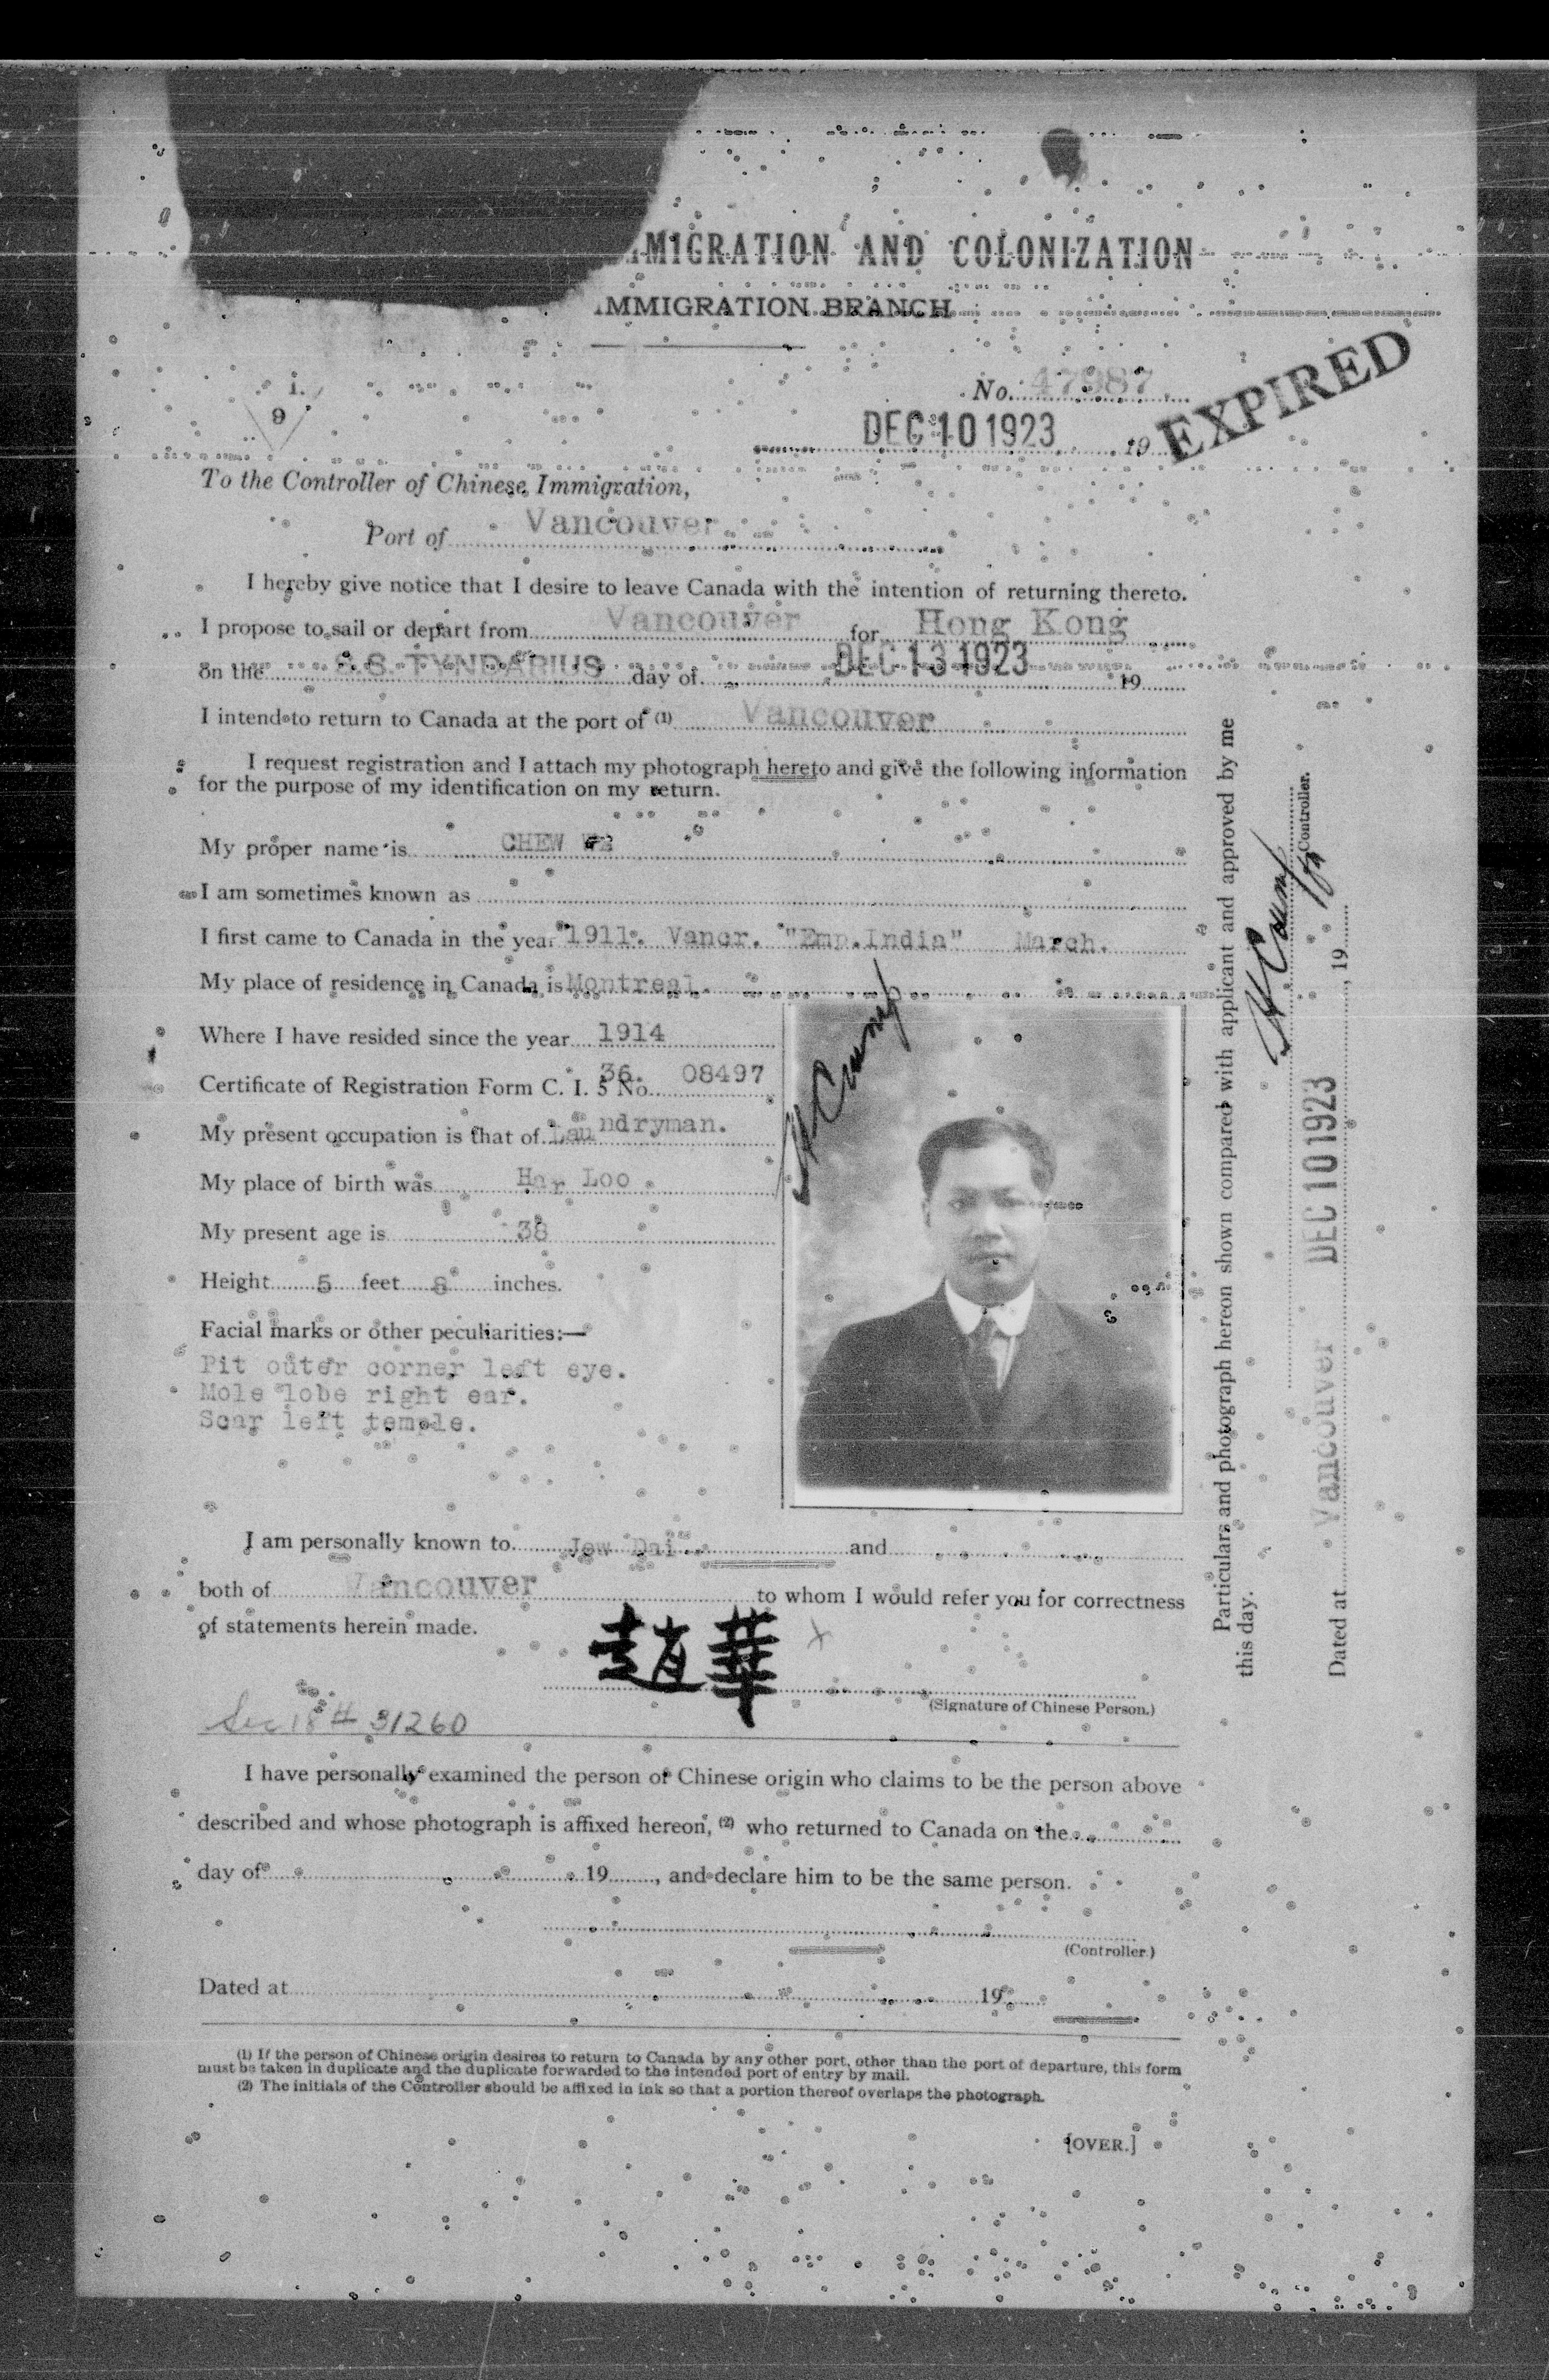 IMMIGRATION AND COLONIZATION
IMMIGRATION BRANCH
1.
9
No. 47987
DEC 10 1923 19
EXPIRED
To the Controller of Chinese Immigration,
Port of Vancouver
I hereby give notice that I desire to leave Canada with the intention of returning thereto.
I propose to sail or depart from Vancouver for Hong Kong
on the S.S. TYNDARIUS day of DEC 13 1923 19
I intend to return to Canada at the port of (1) Vancouver
I request registration and I attach my photograph hereto and give the following information
for the purpose of my identification on my return.
My proper name is CHEW
I am sometimes known as
I first came to Canada in the year 1911. Vancr. "Emp.India" March.
My place of residence in Canada is Montreal.
Where I have resided since the year 1914
Certificate of Registration Form C. I. 5 No. 36. 08497
My present occupation is that of Laundryman.
My place of birth was Har Loo
My present age is 38
Height 5 feet 8 inches.
Facial marks or other peculiarities:—
Pit outer corner left eye.
Mole lobe right ear.
Scar left temple.
I am personally known to Jew Dai and
both of Vancouver to whom I would refer you for correctness
of statements herein made.
趙華 x
(Signature of Chinese Person.)
Sec 18 # 31260
I have personally examined the person of Chinese origin who claims to be the person above
described and whose photograph is affixed hereon, (2) who returned to Canada on the
day of 19 , and declare him to be the same person.
(Controller.)
Dated at 19
(1) If the person of Chinese origin desires to return to Canada by any other port, other than the port of departure, this form
must be taken in duplicate and the duplicate forwarded to the intended port of entry by mail.
(2) The initials of the Controller should be affixed in ink so that a portion thereof overlaps the photograph.
[OVER.]
Particulars and photograph hereon shown compared with applicant and approved by me
this day.
Controller.
Dated at Vancouver DEC 10 1923 , 19